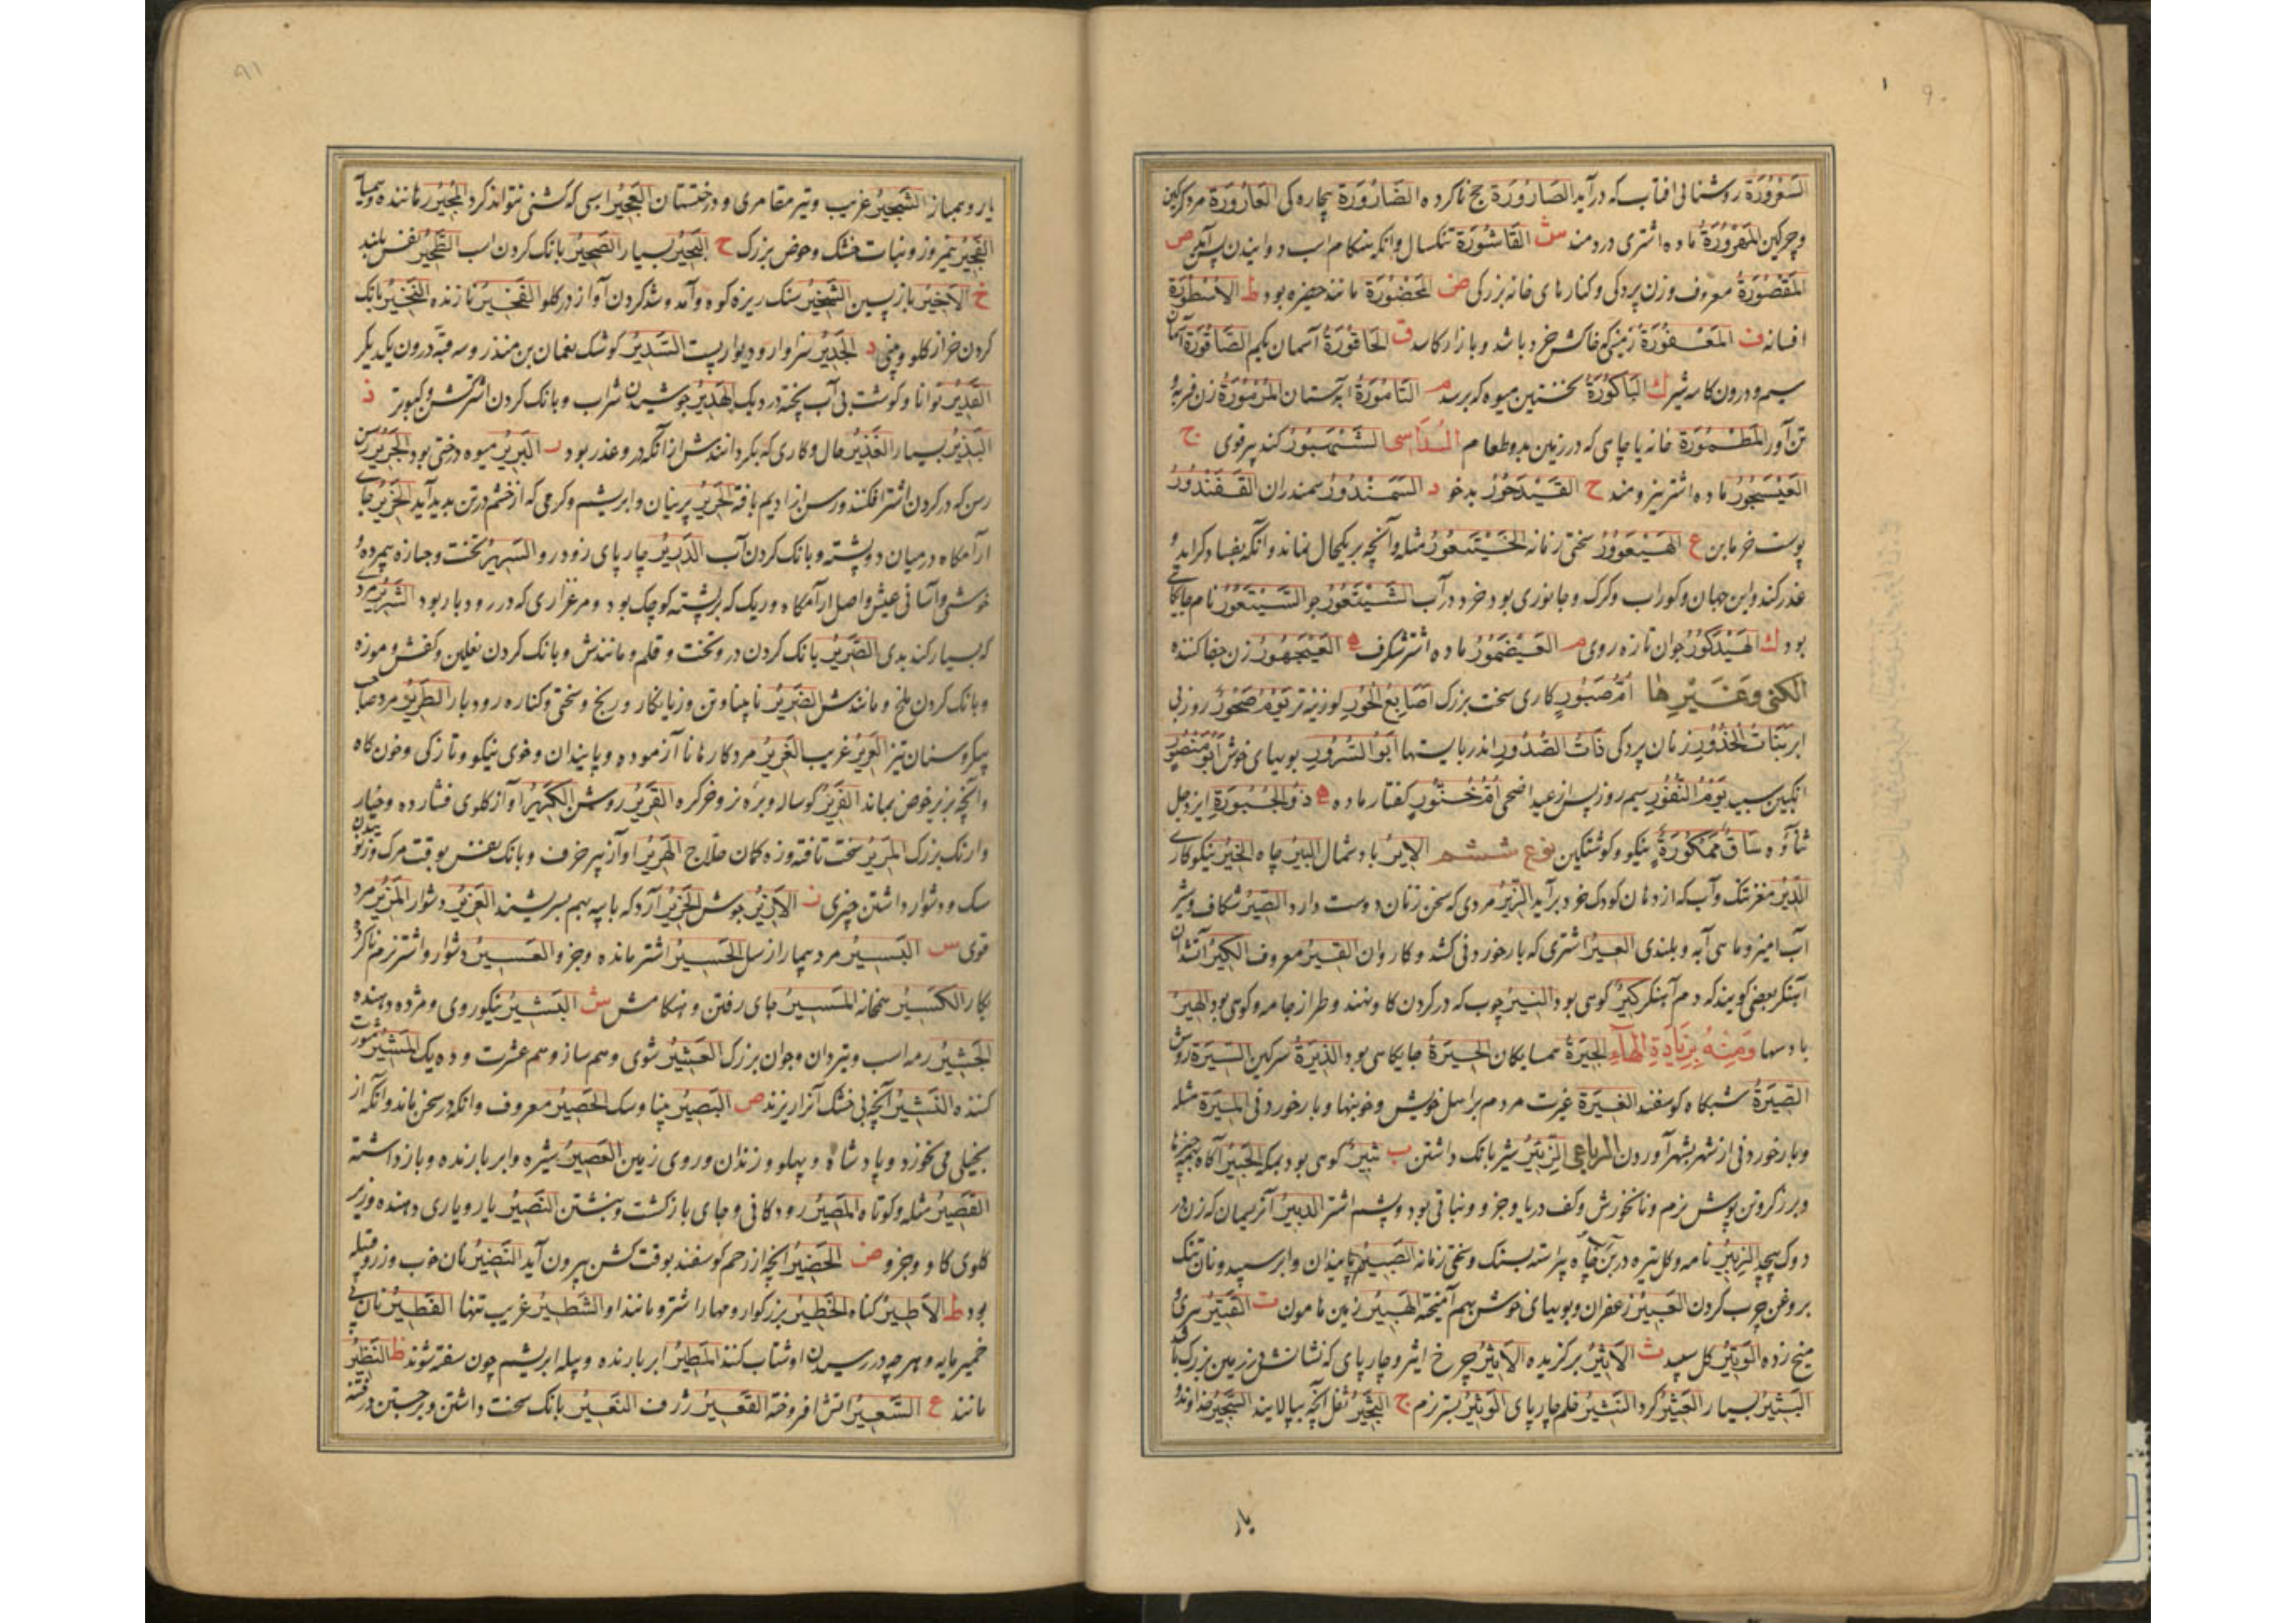 ۹۰
السعرورة روشنائی افتاب که درآید الصارورة حج ناکرده الضارورة بیچاره کی العارورة مرد کرکین
وچرکین المقرورة ماده اشتری دردمند ش القاشورة تنکسال وانکه بهنکام اب دوانیدن پس آید ص
المقصورة معروف وزن پردکی وکنارهای خانه بزرکی ض المحضورة مانند حضیره بود ط الاسطورة
افسانه ف المعفورة زمینی که خاکش خرد باشد وبازار کاسد ق الحاقورة آسمان یکم الصاقورة آسمان
سیم ودرون کاسه سر ك الباکورة نخستین میوه که برسد م التامورة آبدستان المرمورة زن فربه و
تن آور المطمورة خانه یا چاهی که در زمین بود وطعام السداسی الشهبور کند پیر قوی ج
العیسجور ماده اشتر نیرومند ح القیدحور بدخو د السمندور سمندران القفندور
پوست خرمابن ع الهینعور سختی زمانه الخیتعور مثله وآنچه بر یکحال نماند وانکه بفساد کراید و
غدر کند واین جهان وکوراب وکرک وجانوری بود خرد در آب الشیتعور جو الستیعور نام جایکاهی
بود ك الهیدکور جوان تازه روی م العیضمور ماده اشتر شکرف ه العیجهور زن جفا کننده
الکنی وغیرها ام صبور کاری سخت بزرک اصابع الحور لوزینه تر یوم صحور روز بی
ابر بنات الخدور زنان پردکی ذات الصدور اندر بایستها ابو السرور بویهای خوش ابو منصور
انکبین سپید یوم النفور سیم روز پس از عید اضحی ام خنور کفتار ماده ه ذو الجبورة ایزد جل
ثناؤه ساق ممکورة نیکو وکوشتکین نوع ششم الایر باد شمال البیر چاه الخیر نیکوکاری
الریر مغز تنک وآب که از دهان کودک خرد برآید الزیر مردی که سخن زنان دوست دارد الصیر شکاف در و شیر
آب امیز وماهی آبه وبلندی العیر اشتری که بار خوردنی کشد وکاروان القیر معروف الکیر آتشدان
آهنکر بعضی کویند که دم آهنکر کیر کوهی بود النیر چوب که در کردن کاو نهند وطراز جامه وکوهی بود الهیر
باد صبا ومنه بزیادة الهاء الجیرة همسایکان الحیرة جایکاهی بود الذیرة سرکین السیرة روش
الصیرة شبکاه کوسفند الغیرة غیرت مردم بر اهل خویش وخونبها وبار خوردنی المیرة مثله
وبار خوردنی از شهر بشهر آوردن الرباعی الزئیر شیر بانک داشتن ب ثبیر کوهی بود بمکه الخبیر آکاه بهمه چیزها
وبرزکر وتن پوش نرم ونانخورش وکف دریا وجز و ونباتی بود وپشم اشتر الدبیر آن ریسمان که زن در
دوک پیچد الزبیر نامه وکل تیره در بن چاه پیراسته بسنک وسختی زمانه الصبیر پایندان وابر سپید ونان تنک
بروغن چرب کردن العبیر زعفران وبویهای خوش بهم آمیخته الهبیر زمین هامون ت القتیر پیری و
میخ زده الوتیر کل سپید ث الاثیر برکزیده الاثیر چرخ اثیر وچارپای که نشانش در زمین بزرک بود
البثیر بسیار العثیر کرد النثیر خلم چارپای الوثیر بستر نرم ج البجیر ثفل آنچه بپالایند السجیر خداوند و
یار
۹۱
یار وهمباز الشجیر غریب وتیر مقامری ودرختستان العجیر اسبی که کشنی نتواند کرد المجیر رهاننده وهمسایه
الفجیر نیمروز ونبات خشک وحوض بزرک ح البحیر بسیار الصحیر بانک کردن اب الطحیر نفس بلند
خ الاخیر بازپسین الشخیر سنک ریزه کوه وآمد وشد کردن آواز در کلو الفخیر نازنده النخیر بانک
کردن خر از کلو وبینی د الجدیر سزاوار ودیوار پست السدیر کوشک نعمان بن منذر وسه قبه درون یکدیکر
القدیر توانا وکوشت بی آب پخته در دیک الهدیر جوشیدن شراب وبانک کردن اشتر کشن وکبوتر ذ
البذیر بسیار العذیر حال وکاری که بکردانندش از آنکه در وعذر بود ر البریر میوه درختی بود الجریر رسن
رسن که در کردن اشتر افکنند ورسن از ادیم بافته الحریر پرنیان وابریشم وکرمی که از خشم در تن پدید آید الخریر جای
ارامکاه در میان دو پشته وبانک کردن آب الدریر چارپای زود رو السریر تخت وجنازه بی مرده و
خوشی وآسانی عیش واصل ارامکاه وریک که بر پشته کوچک بود ومرغزاری که در رودبار بود الشریر مرد
که بسیار کند بدی الصریر بانک کردن در وتخت وقلم ومانندش وبانک کردن نعلین وکفش وموزه
وبانک کردن ملخ ومانندش الضریر نابینا وتن وزیانکار ورنج وسختی وکناره رودبار الطریر مرد صاحب
پیکر وسنان تیز العریر غریب الغریر مرد کارها نا آزموده وپایندان وخوی نیکو وتازکی وخون کاه
وآنچه بزیر حوض بماند الفریر کوساله وبره نر وخرکره القریر روشن الکریر آواز کلوی فشارده وخیار
وارنک بزرک المریر سخت تافته وزه کمان حلاج الهریر آواز پیر خرف وبانک نفس بوقت مرک وزنوییدن
سک ودشوار داشتن چیزی ز الازیز جوش الخزیر آرد که با پیه بهم بسریشند العزیز دشوار المزیر مرد
قوی س البسیر مرد بیمار از سل الحسیر اشتر مانده وجز و العسیر دشوار واشتر نرم ناکرده
بکار الکسیر همخانه المسیر جای رفتن وهنکامش ش البشیر نیکوروی ومژده دهنده
الجشیر رمه اسب وتیردان وجوان بزرک العشیر شوی وهم ساز وهم عشرت وده یک المشیر مشورت
کننده النشیر آنچه بی خشک آنرا ریزند ص البصیر بینا وسک الحصیر معروف وانکه در سخن بماند وآنکه از
بخیلی می نخورد وپادشاه وپهلو وزندان وروی زمین العصیر شیره وابر بارنده وبازداشته
القصیر مثله وکوتاه المصیر رودکانی وجای بازکشت وبنشتن النصیر یار ویاری دهنده وزیر
کلوی کاو وجز و ض الحضیر انچه از رحم کوسفند بوقت کشن بیرون آید النضیر نان خوب وزر وقبیله
بود ط الاطیر کناه الخطیر بزرکوار ومهار اشتر ومانند او الشطیر غریب تنها الفطیر نان بی
خمیرمایه وهرچه در رسیدن او شتاب کنند المطیر ابر بارنده وپیله ابریشم چون سفته شوند ظ النظیر
مانند ع السعیر اتش افروخته القعیر ژرف النعیر بانک سخت داشتن وبرجستن در فتنه